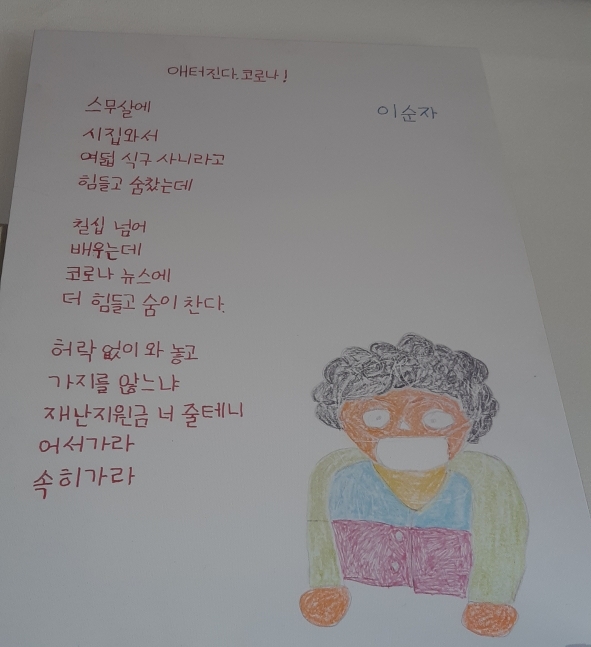 애터진다.코로나!
이순자
스무살에
시집와서
여덟 식구 사니라고
힘들고 숨찼는데
칠십 넘어
배우는데
코로나 뉴스에
더 힘들고 숨이 찬다.
허락 없이 와 놓고
가지를 않느냐
재난지원금 너 줄테니
어서가라
속히가라